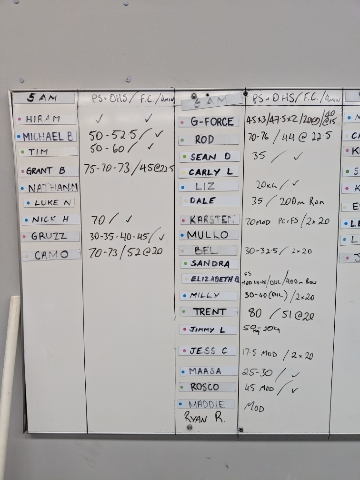 5 AM PS+OHS / F.C / 4min
HIRAM ✓ ✓
MICHAEL B 50-52.5 / ✓
TIM 50-60 / ✓
GRANT B 75-70-73 / 45@22.5
NATHAN
LUKE N
NICK H 70 / ✓
GRUZZ 30-35-40-45 / ✓
CAMO 70-73 / 52@20
6 AM PS+OHS / F.C / 4min
G-FORCE 45x3/47.5x2/
ROD 70-76 / 44@22.5
SEAN D 35 / ✓
CARLY L
LIZ 20KG / ✓
DALE 35 / 200m Run
KARSTEN 70MOD PC+FS / 2x20
MULLO
BEL 30-32.5 / 2x20
SANDRA
ELIZABETH B /400m Row
MILLY 30-40 (OHL) / 2x20
TRENT 80 / 51@20
JIMMY L
JESS C 17.5 MOD / 2x20
MAASA 25-30 / ✓
ROSCO 45 MOD / ✓
MADDIE MOD
RYAN R.